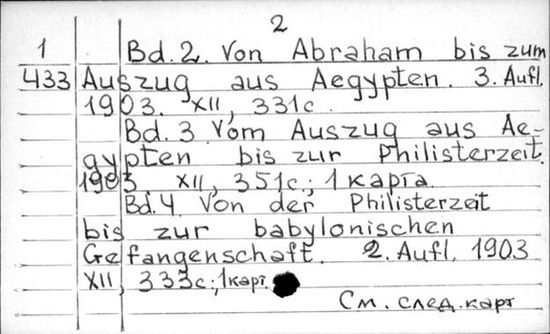 2
1 Bd. 2. Von Abraham bis zum
433 Auszug aus Aegypten. 3. Aufl.
1903. XII, 331с.
Bd. 3 Vom Auszug aus Ae-
gypten bis zur Philisterzeit.
1903. XII, 351с.; 1 карта.
Bd. 4. Von der Philisterzeit
bis zur babylonischen
Gefangenschaft. 2. Aufl. 1903
XII, 333с.; 1 карт.
См. след. карт